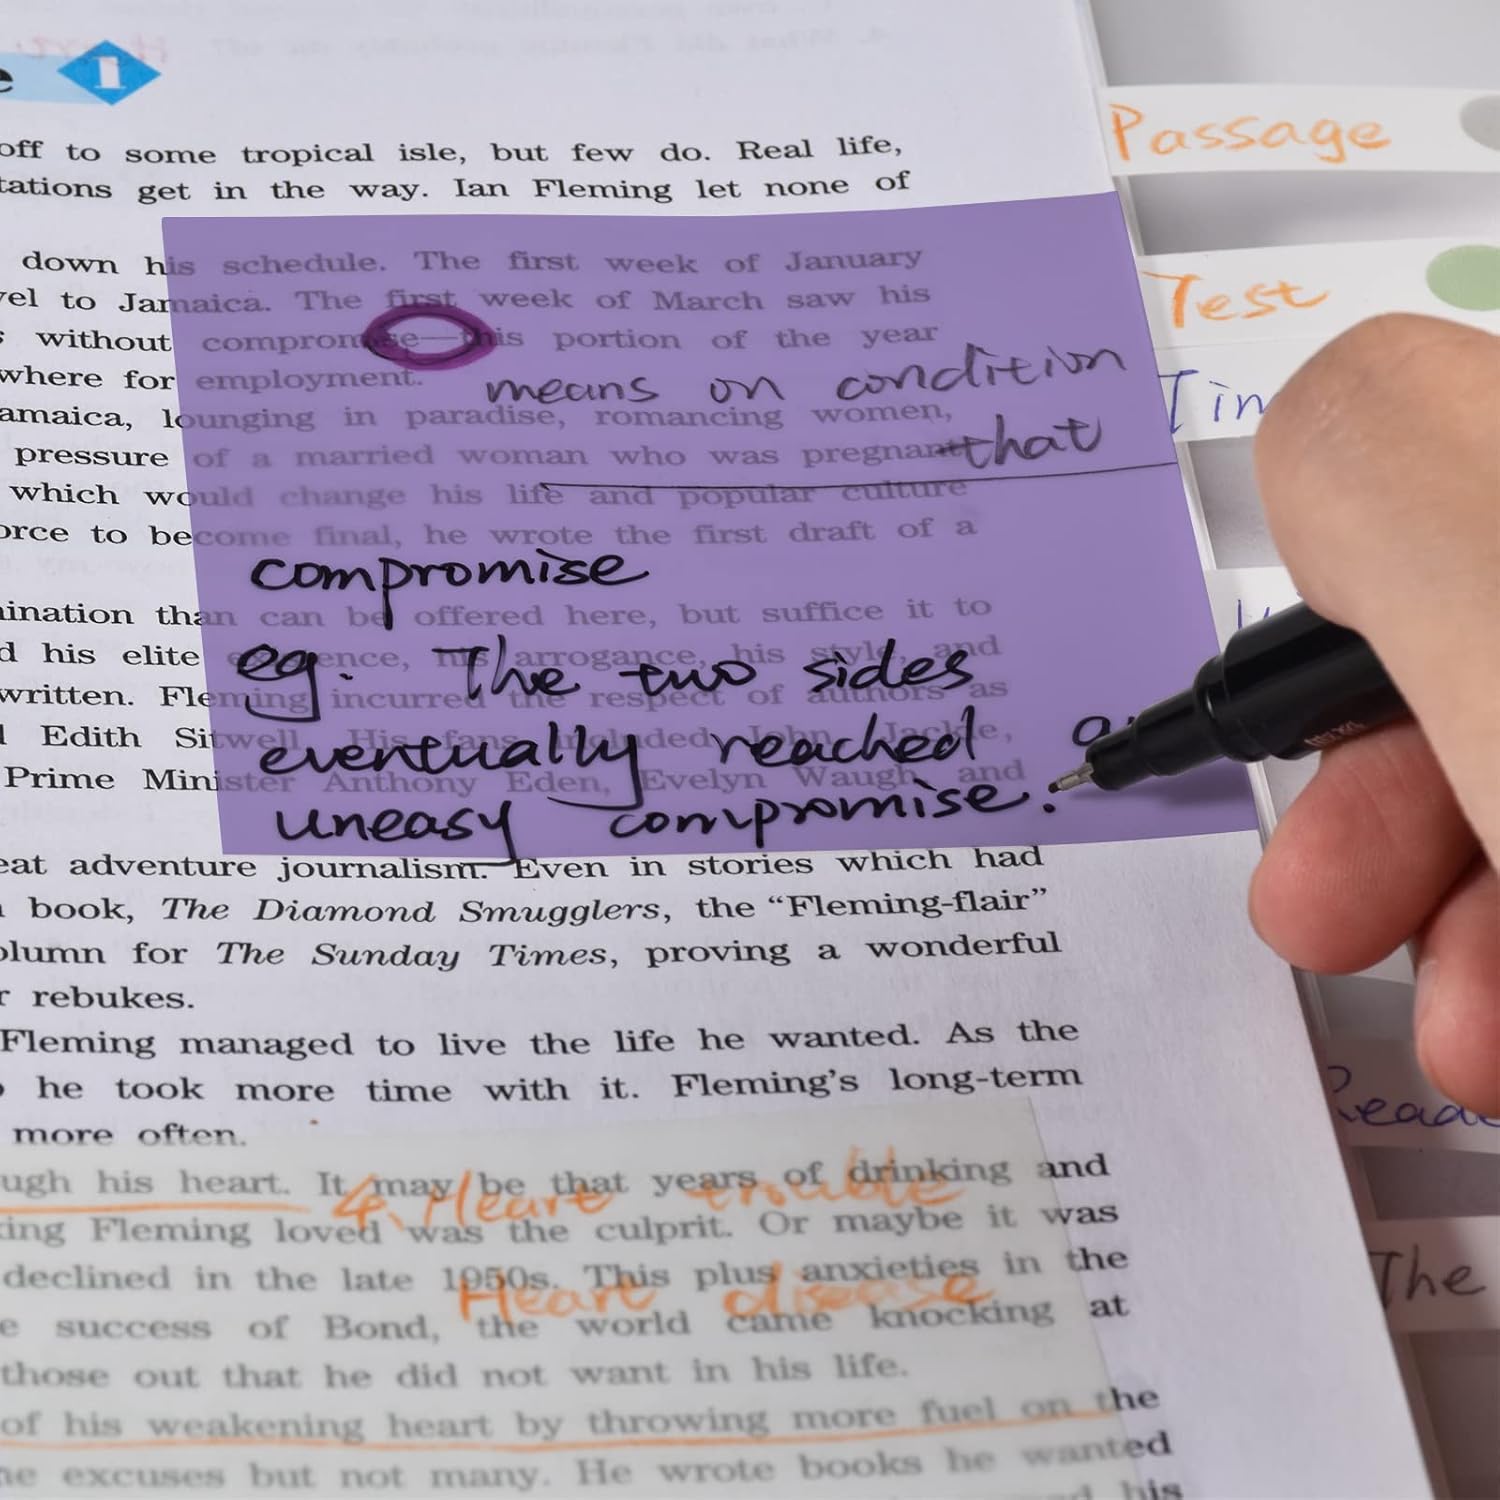 1
off to some tropical isle, but few do. Real life,
tations get in the way. Ian Fleming let none of
down his schedule. The first week of January
vel to Jamaica. The first week of March saw his
without compromise—this portion of the year
where for employment.
means on condition
amaica, lounging in paradise, romancing women,
that
pressure of a married woman who was pregnant
which would change his life and popular culture
orce to become final, he wrote the first draft of a
compromise
ination than can be offered here, but suffice it to
eg. The two sides
d his elite his arrogance, his style, and
written. Fleming incurred the respect of authors as
eventually reached a
Edith Sitwell. His fans included John
uneasy compromise.
Prime Minister Anthony Eden, Evelyn Waugh, and
eat adventure journalism. Even in stories which had
book, The Diamond Smugglers, the “Fleming-flair”
olumn for The Sunday Times, proving a wonderful
r rebukes.
Fleming managed to live the life he wanted. As the
he took more time with it. Fleming’s long-term
more often.
ugh his heart. It may be that years of drinking and
4. Heart trouble
king Fleming loved was the culprit. Or maybe it was
declined in the late 1950s. This plus anxieties in the
Heart disease
e success of Bond, the world came knocking at
those out that he did not want in his life.
of his weakening heart by throwing more fuel on the
he excuses but not many. He wrote books he wanted
his
Passage
Test
Tim
Read
The